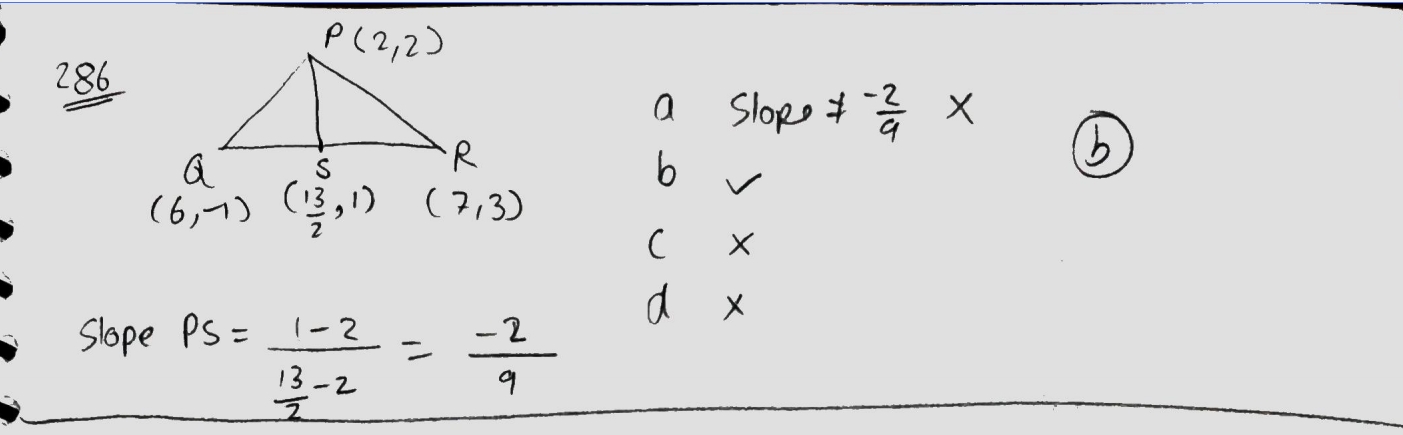 286
P(2,2)
Q
S
R
(6,-1) (13/2,1) (7,3)
Slope PS = 1-2 / 13/2 -2 = -2/9
a Slope ≠ -2/9 ×
b ✓
c ×
d ×
b